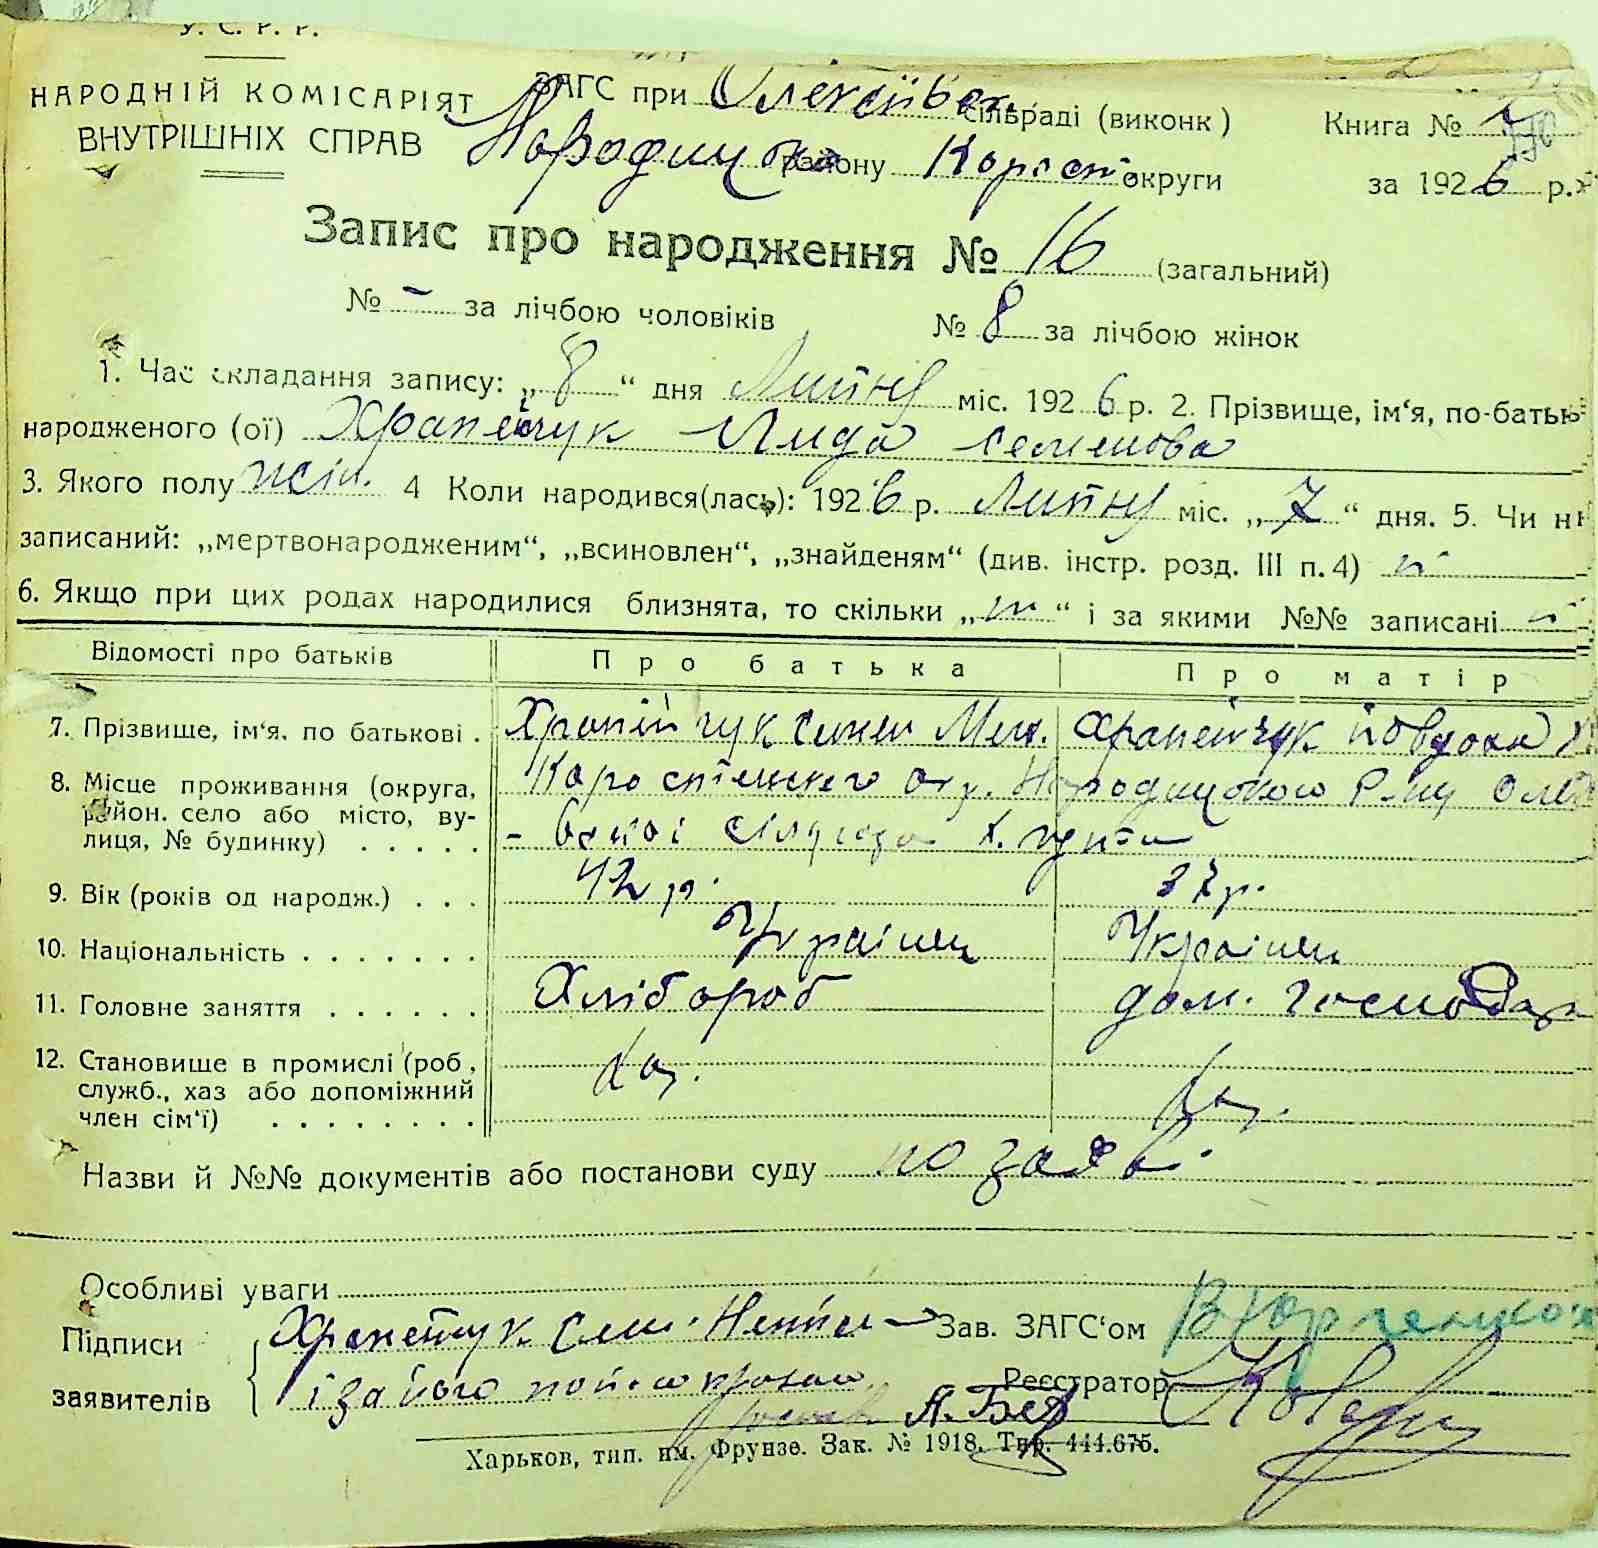 У. С. Р. Р.
НАРОДНІЙ КОМІСАРІЯТ
ВНУТРІШНІХ СПРАВ
ЗАГС при Олексіївськ. сільраді (виконк)
Народицького району Корост округи
Книга №
за 1926 р.
Запис про народження № 16 (загальний)
№ - за лічбою чоловіків № 8 за лічбою жінок
1. Час складання запису: „8“ дня Липня міс. 1926 р. 2. Прізвище, ім‘я, по-батью
народженого (ої) Храпейчук Лида Семенова
3. Якого полу жін. 4 Коли народився(лась): 1926 р. Липня міс. „7“ дня. 5. Чи н
записаний: „мертвонародженим“, „всиновлен“, „знайденям“ (див. інстр. розд. III п. 4)
6. Якщо при цих родах народилися близнята, то скільки „ “ і за якими №№ записані
Відомості про батьків
Про батька
Про матір
7. Прізвище, ім‘я. по батькові . Храпійчук Семен Храпейчук Йовдоха
8. Місце проживання (округа, Коростенського окр. Народицького Р-ну
район. село або місто, ву-
лиця, № будинку) . . . . .
9. Вік (років од народж.) . . . 42 р. 37 р.
10. Національність . . . . . . . Українец Українец
11. Головне заняття . . . . . . Хлібороб дом. господар
12. Становище в промислі (роб, хаз. хаз.
служб., хаз або допоміжний
член сім‘ї) . . . . . . . .
Назви й №№ документів або постанови суду по заяв.
Особливі уваги
Підписи
заявителів
Храпейчук Сем.
і за його
А.
Зав. ЗАГС‘ом
Реєстратор
Харьков, тип. им. Фрунзе. Зак. № 1918. Тир. 444.675.